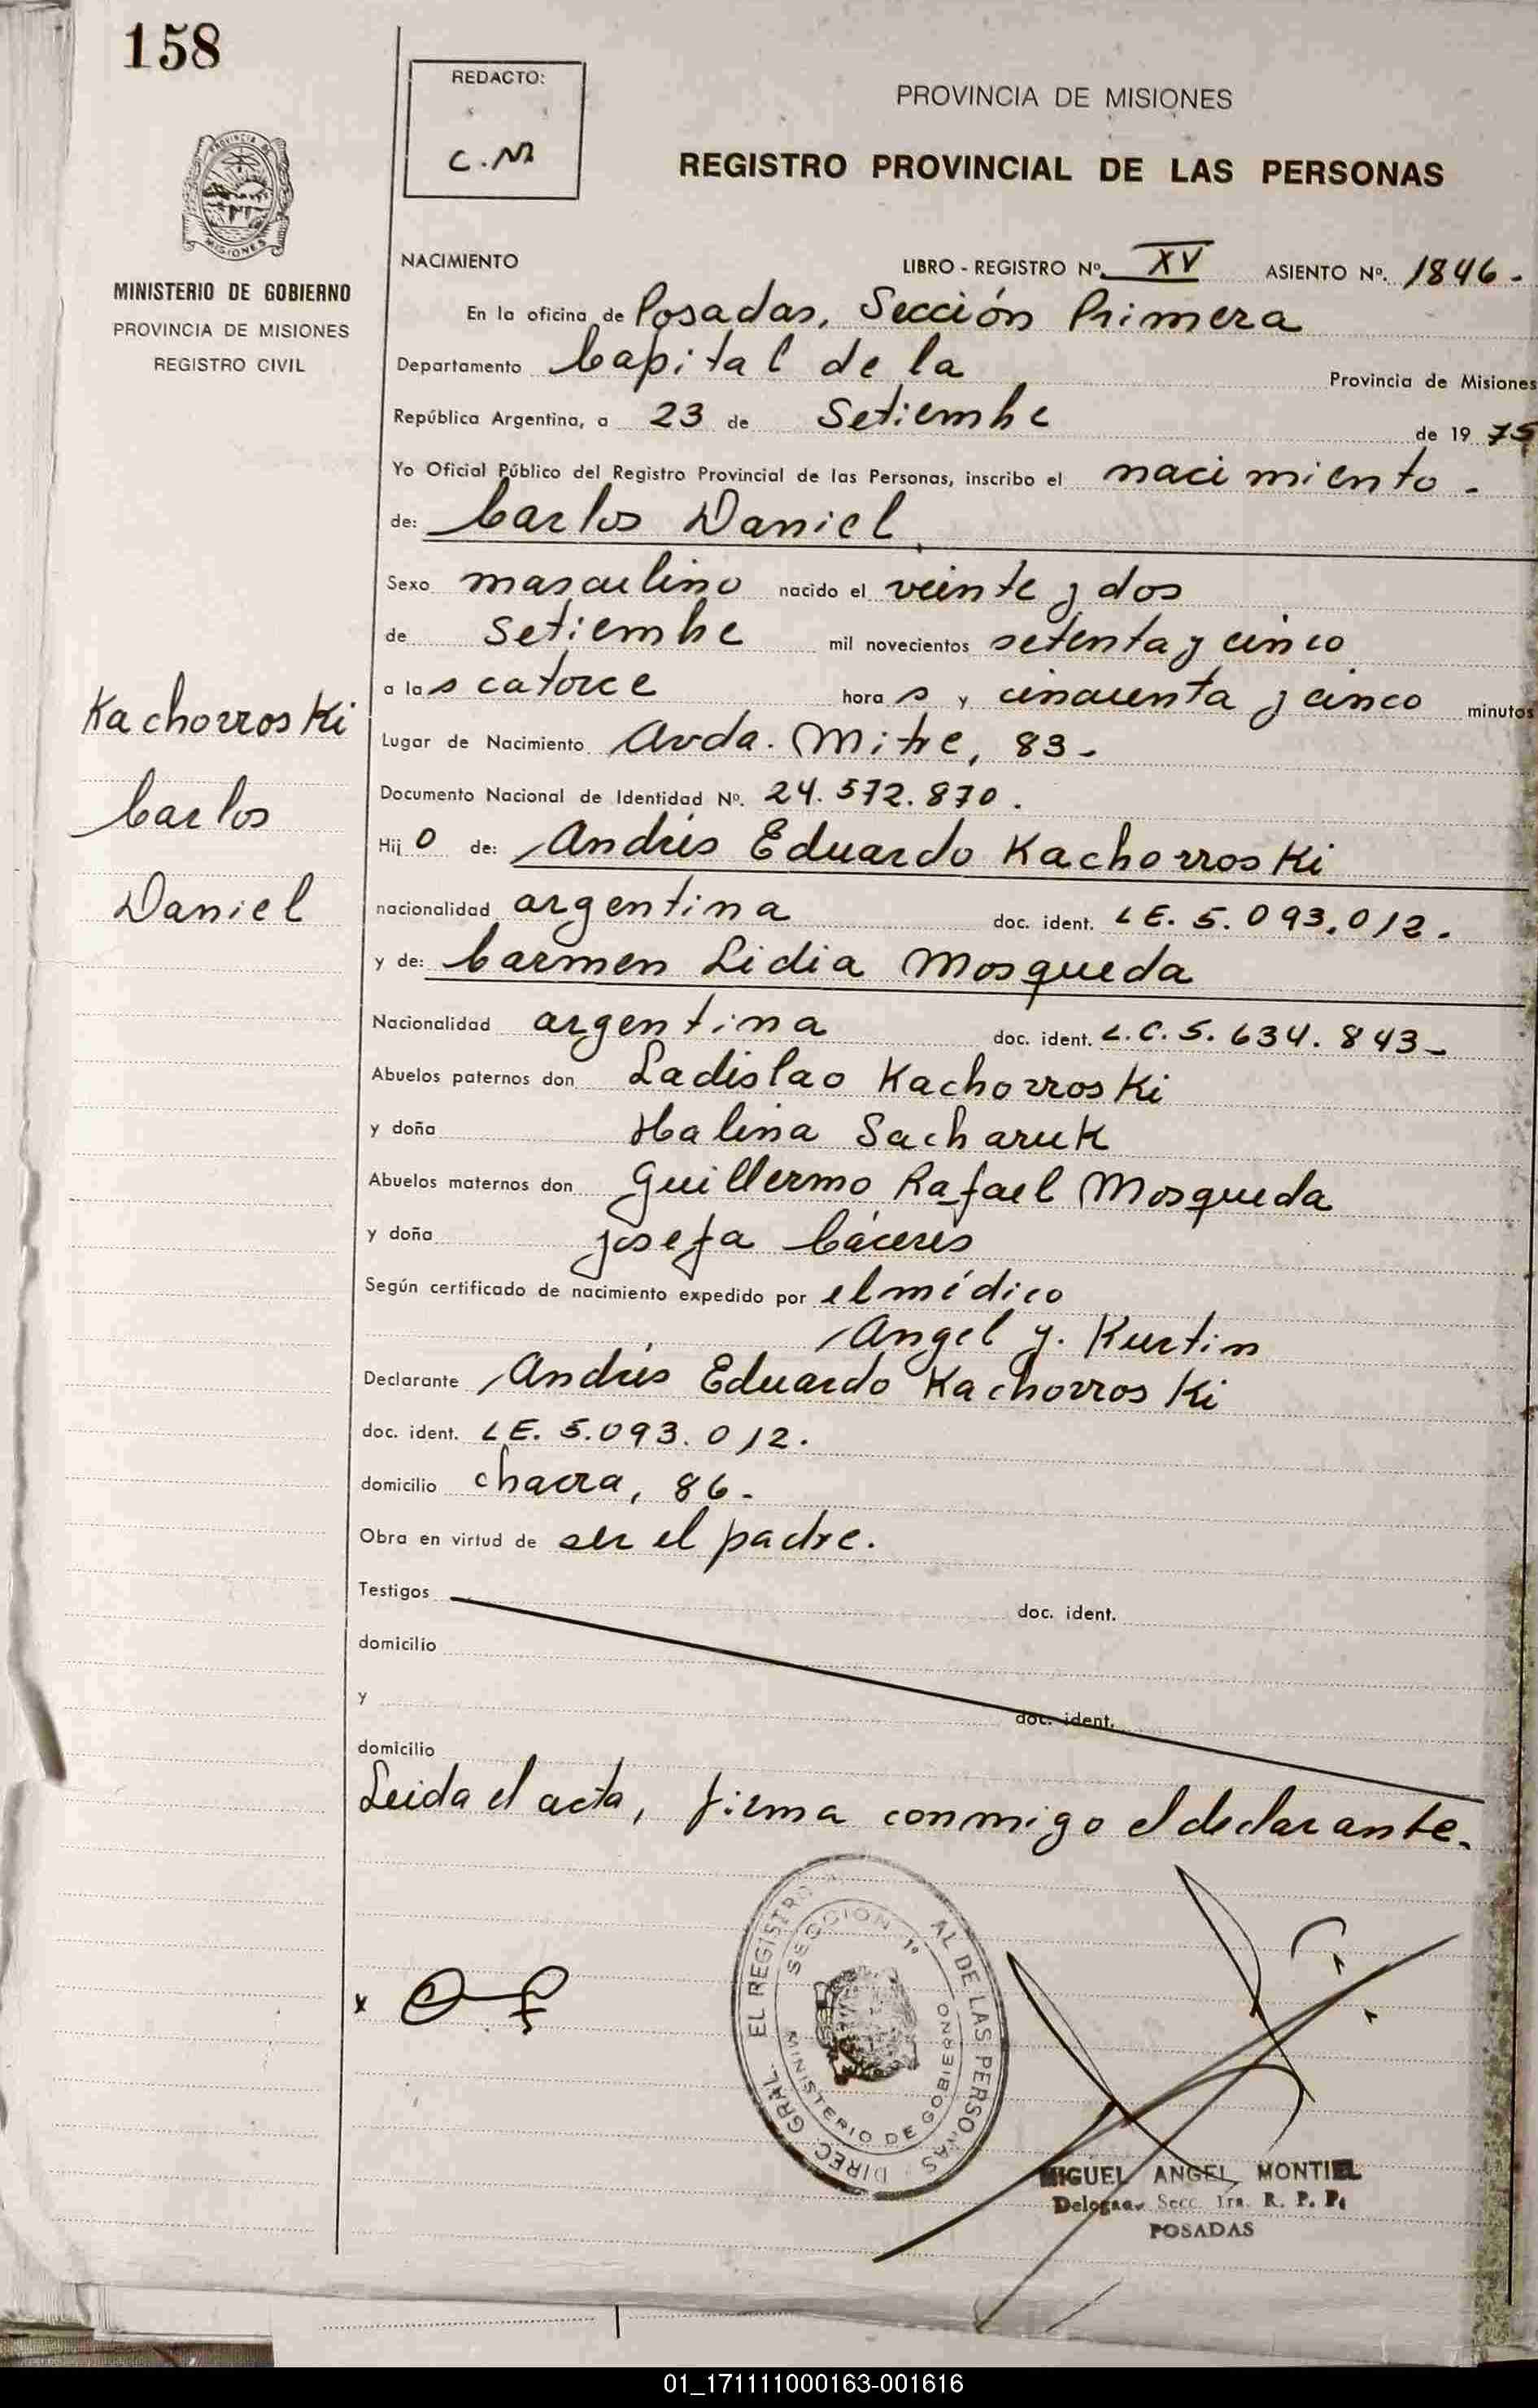 158
REDACTO:
C.M
PROVINCIA DE MISIONES
REGISTRO PROVINCIAL DE LAS PERSONAS
PROVINCIA DE
MISIONES
MINISTERIO DE GOBIERNO
PROVINCIA DE MISIONES
REGISTRO CIVIL
NACIMIENTO
LIBRO - REGISTRO Nº. XV ASIENTO Nº. 1846.-
En la oficina de Posadas, Sección Primera
Departamento Capital de la Provincia de Misiones
República Argentina, a 23 de Setiembre de 19 75
Yo Oficial Público del Registro Provincial de las Personas, inscribo el nacimiento.-
de: Carlos Daniel
Sexo masculino nacido el veinte y dos
de Setiembre mil novecientos setenta y cinco
a las catorce horas y cincuenta y cinco minutos
Lugar de Nacimiento Avda. Mitre, 83-
Documento Nacional de Identidad Nº. 24.572.870.
Hijo de: Andrés Eduardo Kachorroski
nacionalidad argentina doc. ident. LE. 5.093.012.
y de: Carmen Lidia Mosqueda
Nacionalidad argentina doc. ident. L.C.5.634.843-
Abuelos paternos don Ladislao Kachorroski
y doña Halina Sacharuk
Abuelos maternos don Guillermo Rafael Mosqueda
y doña Josefa Cáceres
Según certificado de nacimiento expedido por el médico
Angel y. Kurtin
Declarante Andrés Eduardo Kachorroski
doc. ident. LE. 5.093.012.
domicilio chacra, 86.-
Obra en virtud de ser el padre.
Testigos doc. ident.
domicilio
y doc. ident.
domicilio
Leida el acta, firma conmigo el declarante.
Kachorroski
Carlos
Daniel
x
DIREC. GRAL. EL REGISTRO AL DE LAS PERSONAS
SECCION 1º
MINISTERIO DE GOBIERNO
MIGUEL ANGEL MONTIEL
Secc. 1ra. R. P. P.
POSADAS
01_171111000163-001616